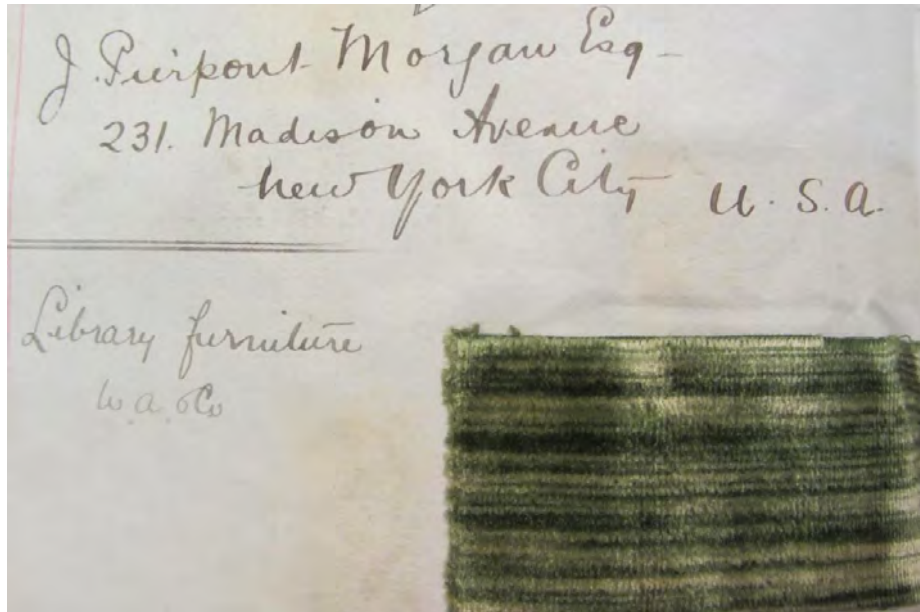 J. Pierpont Morgan Esq -
231. Madison Avenue
New York City U. S. A.
Library furniture
W. A. & Co